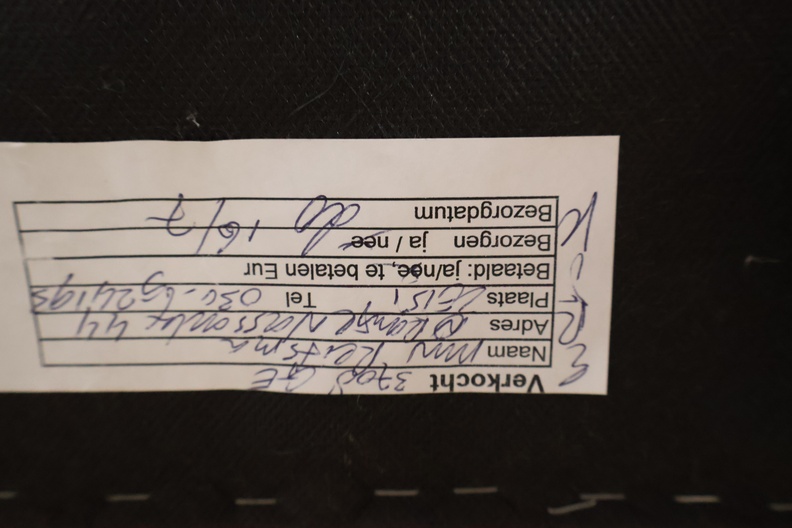 Verkocht 3708 GE
Naam mw Reitsma
Adres Oranje Nassaulx 44
Plaats Zeist Tel 030-6924193
Betaald: ja/nee, te betalen Eur
Bezorgen ja / nee
Bezorgdatum do 16/7